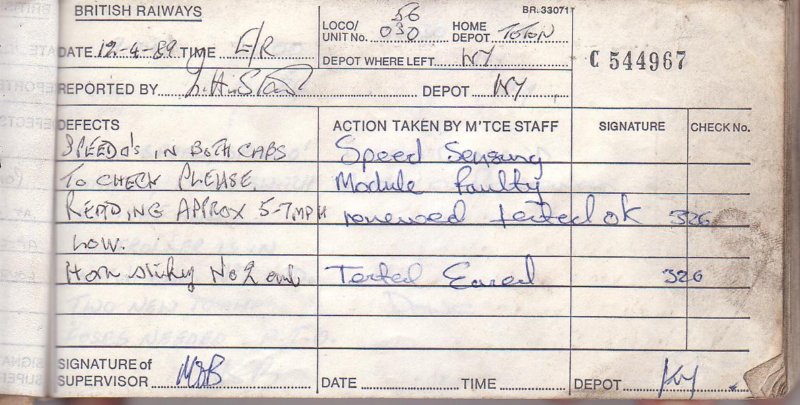 BRITISH RAIWAYS
BR. 33071
DATE 12-4-89 TIME E/R
LOCO/ UNIT No. 56 030
HOME DEPOT TOTON
DEPOT WHERE LEFT WY
C 544967
REPORTED BY
DEPOT WY
DEFECTS
ACTION TAKEN BY M'TCE STAFF
SIGNATURE
CHECK No.
SPEEDO'S IN BOTH CABS
Speed Sensung
TO CHECK PLEASE.
Module faulty
READING APPROX 5-7MPH
renewed tested ok 326
LOW.
Horn sticky No 2 end
Tested Eased 326
TWO NEW
NEEDED
SIGNATURE of SUPERVISOR
DATE
TIME
DEPOT KY